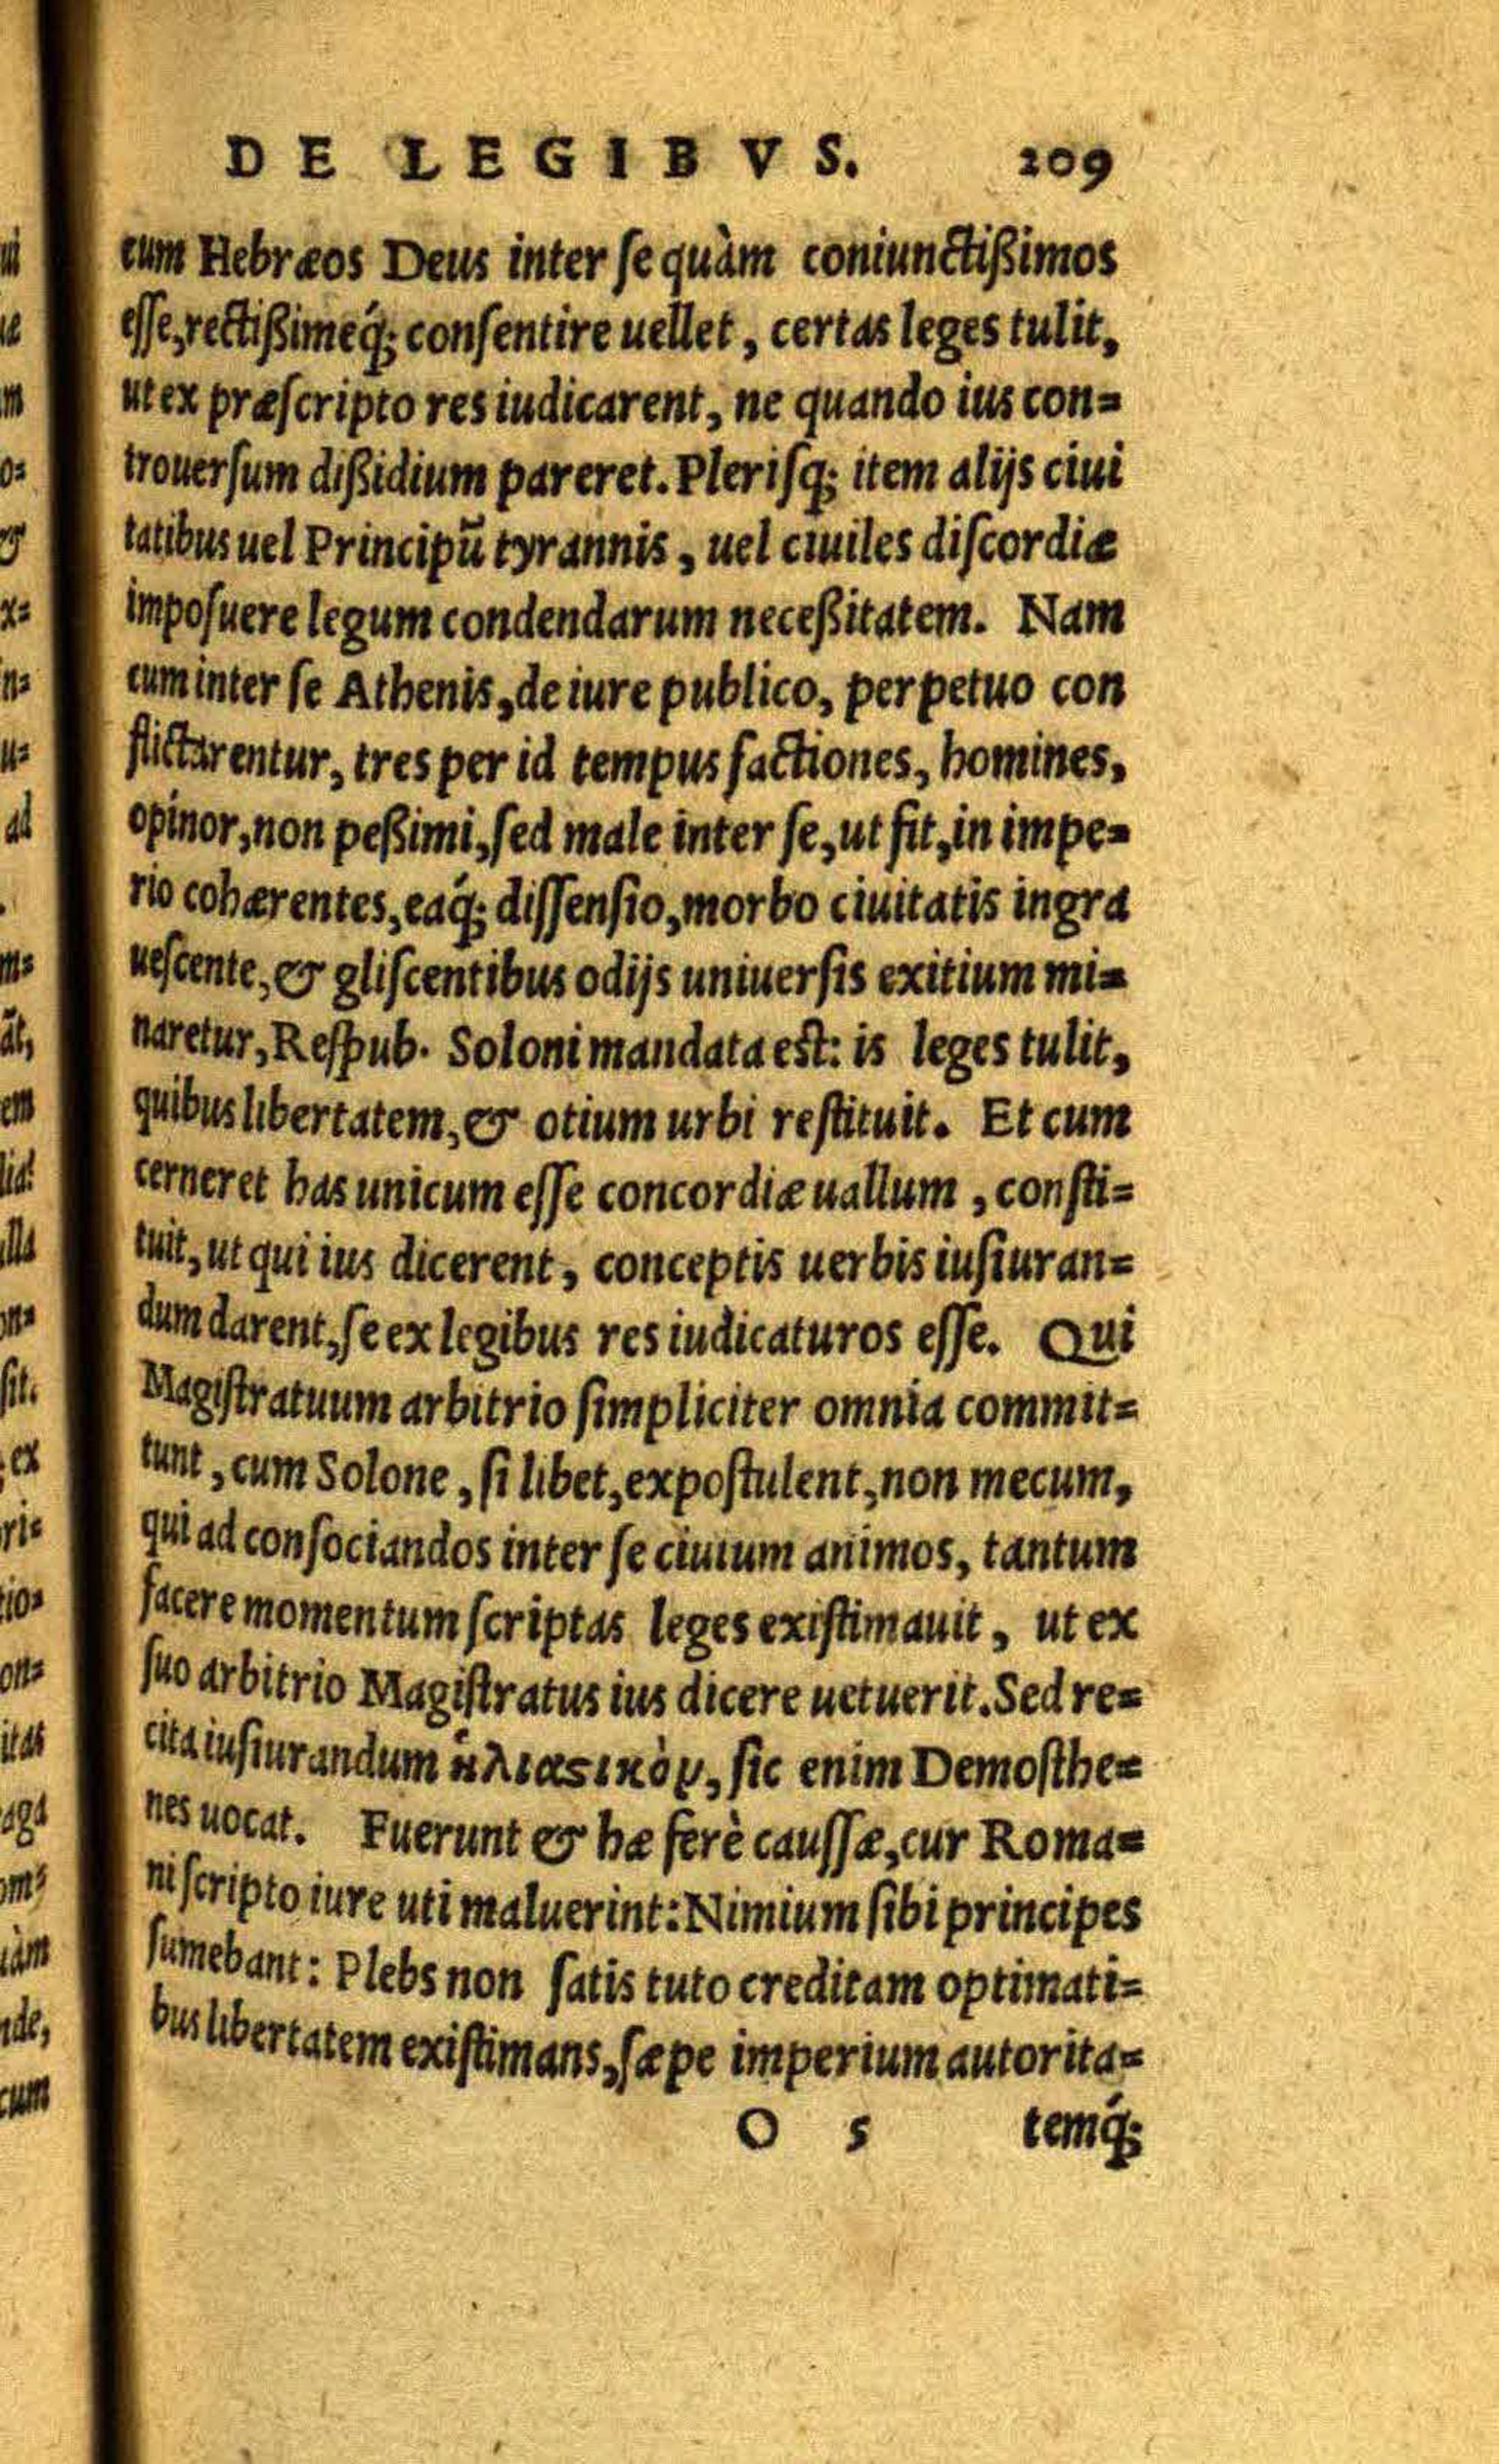 DE LEGIBVS. 209
cum Hebræos Deus inter se quàm coniunctißimos
esse, rectißimeq́; consentire uellet, certas leges tulit,
ut ex præscripto res iudicarent, ne quando ius con=
trouersum dißidium pareret. Plerisq; item alijs ciui
tatibus uel Principũ tyrannis, uel ciuiles discordiæ
imposuere legum condendarum neceßitatem. Nam
cum inter se Athenis, de iure publico, perpetuo con
flictarentur, tres per id tempus factiones, homines,
opinor, non peßimi, sed male inter se, ut fit, in impe=
rio cohærentes, eaq́; dissensio, morbo ciuitatis ingra
uescente, & gliscentibus odijs uniuersis exitium mi=
naretur, Respub. Soloni mandata est: is leges tulit,
quibus libertatem, & otium urbi restituit. Et cum
cerneret has unicum esse concordiæ uallum, consti=
tuit, ut qui ius dicerent, conceptis uerbis iusiuran=
dum darent, se ex legibus res iudicaturos esse. Qui
Magistratuum arbitrio simpliciter omnia commit=
tunt, cum Solone, si libet, expostulent, non mecum,
qui ad consociandos inter se ciuium animos, tantum
facere momentum scriptas leges existimauit, ut ex
suo arbitrio Magistratus ius dicere uetuerit. Sed re=
cita iusiurandum ἡλιαϛικὸν, sic enim Demosthe=
nes uocat. Fuerunt & hæ ferè caussæ, cur Roma=
ni scripto iure uti maluerint: Nimium sibi principes
sumebant: Plebs non satis tuto creditam optimati=
bus libertatem existimans, sæpe imperium autorita=
O 5 temq́;